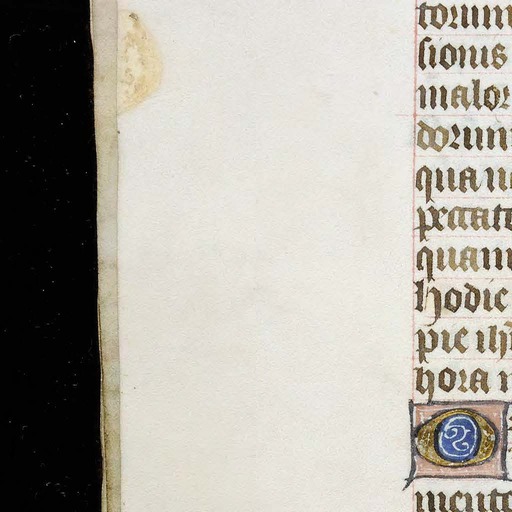 torum
sionis
malor
dorum
qua u
peccato
quam
hodie
pie ih̄
hora n
O
mento